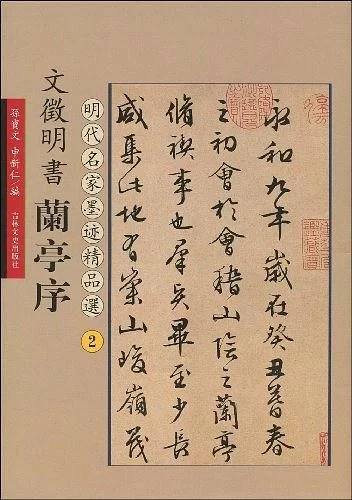 永和九年歲在癸丑暮春
之初會於會稽山陰之蘭亭
脩禊事也羣賢畢至少長
咸集此地有崇山峻嶺茂
明代名家墨迹精品選 2
文徵明書 蘭亭序
孫寶文 申新仁/編 吉林文史出版社